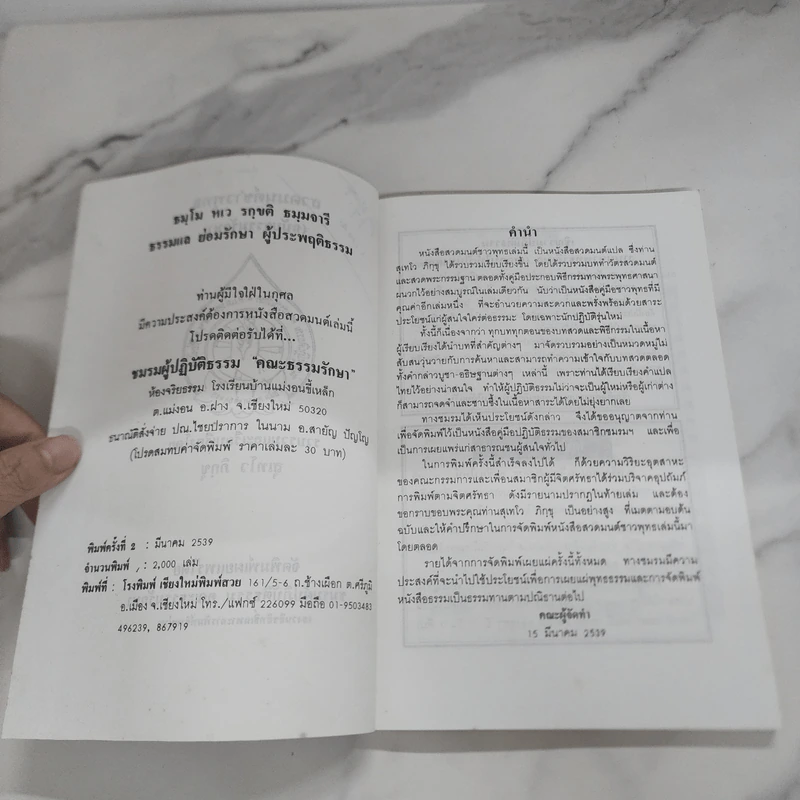 ธมฺโม หเว รกฺขติ ธมฺมจารี
ธรรมแล ย่อมรักษา ผู้ประพฤติธรรม
ท่านผู้มีใจใฝ่ในกุศล
มีความประสงค์ต้องการหนังสือสวดมนต์เล่มนี้
โปรดติดต่อรับได้ที่...
ชมรมผู้ปฏิบัติธรรม "คณะธรรมรักษา"
ห้องจริยธรรม โรงเรียนบ้านแม่งอนขี้เหล็ก
ต.แม่งอน อ.ฝาง จ.เชียงใหม่ 50320
ธนาณัติสั่งจ่าย ปณ.ไชยปราการ ในนาม อ.สายัญ ปัญโญ
(โปรดสมทบค่าจัดพิมพ์ ราคาเล่มละ 30 บาท)
พิมพ์ครั้งที่ 2 : มีนาคม 2539
จำนวนพิมพ์ : 2,000 เล่ม
พิมพ์ที่ : โรงพิมพ์ เชียงใหม่พิมพ์สวย 161/5-6 ถ.ช้างเผือก ต.ศรีภูมิ
อ.เมือง จ.เชียงใหม่ โทร./แฟกซ์ 226099 มือถือ 01-9503483
496239, 867919
คำนำ
หนังสือสวดมนต์ชาวพุทธเล่มนี้ เป็นหนังสือสวดมนต์แปล ซึ่งท่าน
สุเทโว ภิกฺขุ ได้รวบรวมเรียบเรียงขึ้น โดยได้รวบรวมบททำวัตรสวดมนต์
และสวดพระกรรมฐาน ตลอดทั้งคู่มือประกอบพิธีกรรมทางพระพุทธศาสนา
ผนวกไว้อย่างสมบูรณ์ในเล่มเดียวกัน นับว่าเป็นหนังสือคู่มือชาวพุทธที่มี
คุณค่าอีกเล่มหนึ่ง ที่จะอำนวยความสะดวกและพรั่งพร้อมด้วยสาระ
ประโยชน์แก่ผู้สนใจใคร่ต่อธรรมะ โดยเฉพาะนักปฏิบัติรุ่นใหม่
ทั้งนี้ก็เนื่องจากว่า ทุกบททุกตอนของบทสวดและพิธีกรรมในเนื้อหา
ผู้เรียบเรียงได้นำบทที่สำคัญต่างๆ มาจัดรวบรวมอย่างเป็นหมวดหมู่ไม่
สับสนวุ่นวายกับการค้นหาและสามารถทำความเข้าใจกับบทสวดตลอด
ทั้งคำกล่าวบูชา-อธิษฐานต่างๆ เหล่านี้ เพราะท่านได้เรียบเรียงคำแปล
ไทยไว้อย่างน่าสนใจ ทำให้ผู้ปฏิบัติธรรมไม่ว่าจะเป็นผู้ใหม่หรือผู้เก่าต่าง
ก็สามารถจดจำและซาบซึ้งในเนื้อหาสาระได้โดยไม่ยุ่งยากเลย
ทางชมรมได้เห็นประโยชน์ดังกล่าว จึงได้ขออนุญาตจากท่าน
เพื่อจัดพิมพ์ไว้เป็นหนังสือคู่มือปฏิบัติธรรมของสมาชิกชมรมฯ และเพื่อ
เป็นการเผยแพร่แก่สาธารณชนผู้สนใจทั่วไป
ในการพิมพ์ครั้งนี้สำเร็จลงไปได้ ก็ด้วยความวิริยะอุตสาหะ
ของคณะกรรมการและเพื่อนสมาชิกผู้มีจิตศรัทธาได้ร่วมบริจาคอุปถัมภ์
การพิมพ์ตามจิตศรัทธา ดังมีรายนามปรากฏในท้ายเล่ม และต้อง
ขอกราบขอบพระคุณท่านสุเทโว ภิกฺขุ เป็นอย่างสูง ที่เมตตามอบต้น
ฉบับและให้คำปรึกษาในการจัดพิมพ์หนังสือสวดมนต์ชาวพุทธเล่มนี้มา
โดยตลอด
รายได้จากการจัดพิมพ์เผยแผ่ครั้งนี้ทั้งหมด ทางชมรมมีความ
ประสงค์ที่จะนำไปใช้ประโยชน์เพื่อการเผยแผ่พุทธธรรมและการจัดพิมพ์
หนังสือธรรมเป็นธรรมทานตามปณิธานต่อไป
คณะผู้จัดทำ
15 มีนาคม 2539